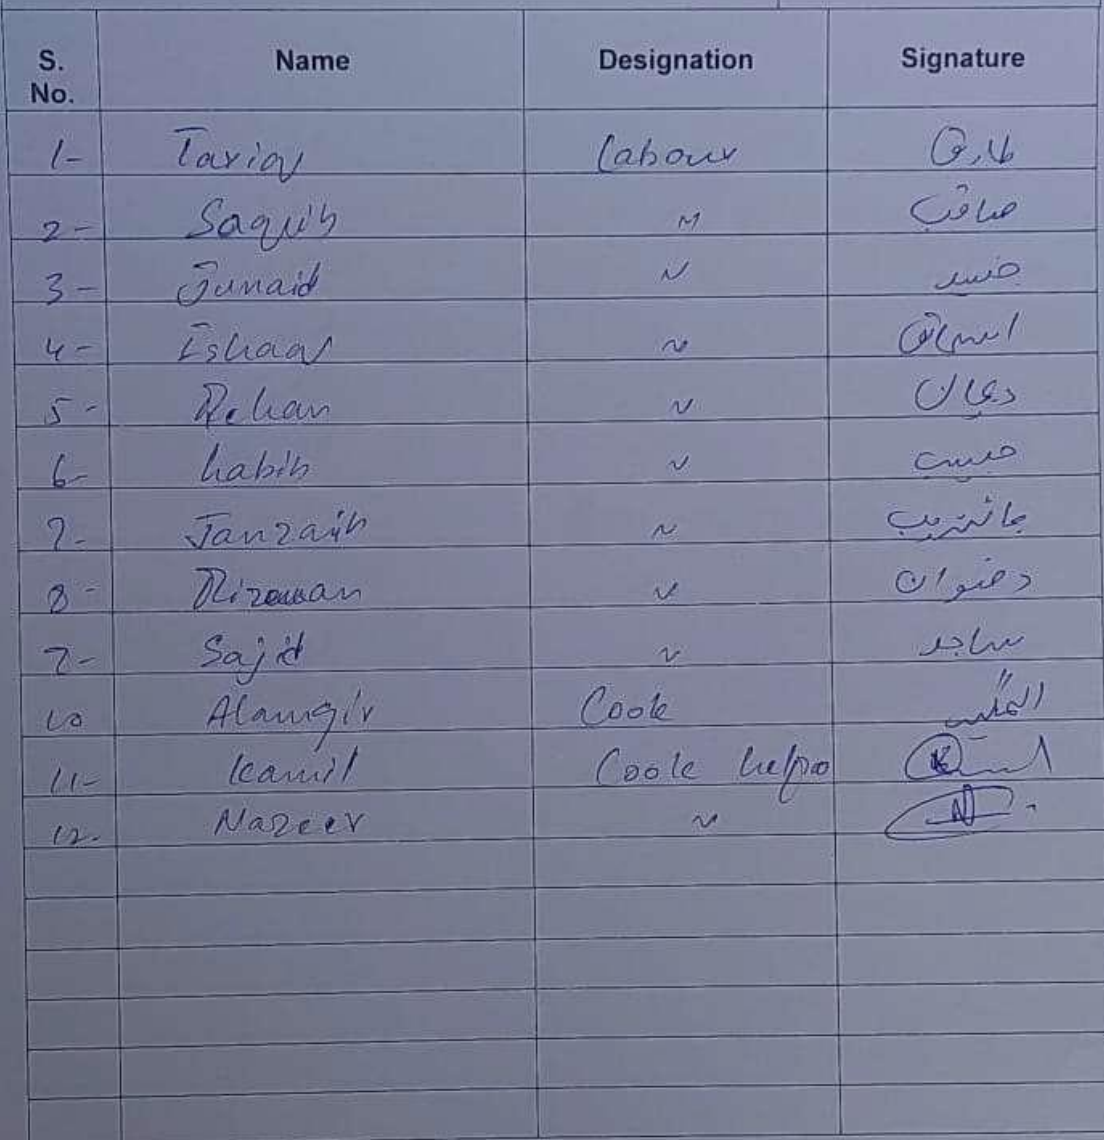 S. No. Name Designation Signature
1- Tariq Labour طارق
2- Saquib " ثاقب
3- Junaid " جنید
4- Ishaaq "
5- Rehan " ریحان
6- habib " حبیب
7- Janzaib "
8- Rizwan " رضوان
9- Sajid " ساجد
10 Alamgir Cook
11- Kamil Cook helper
12- Nazeer "